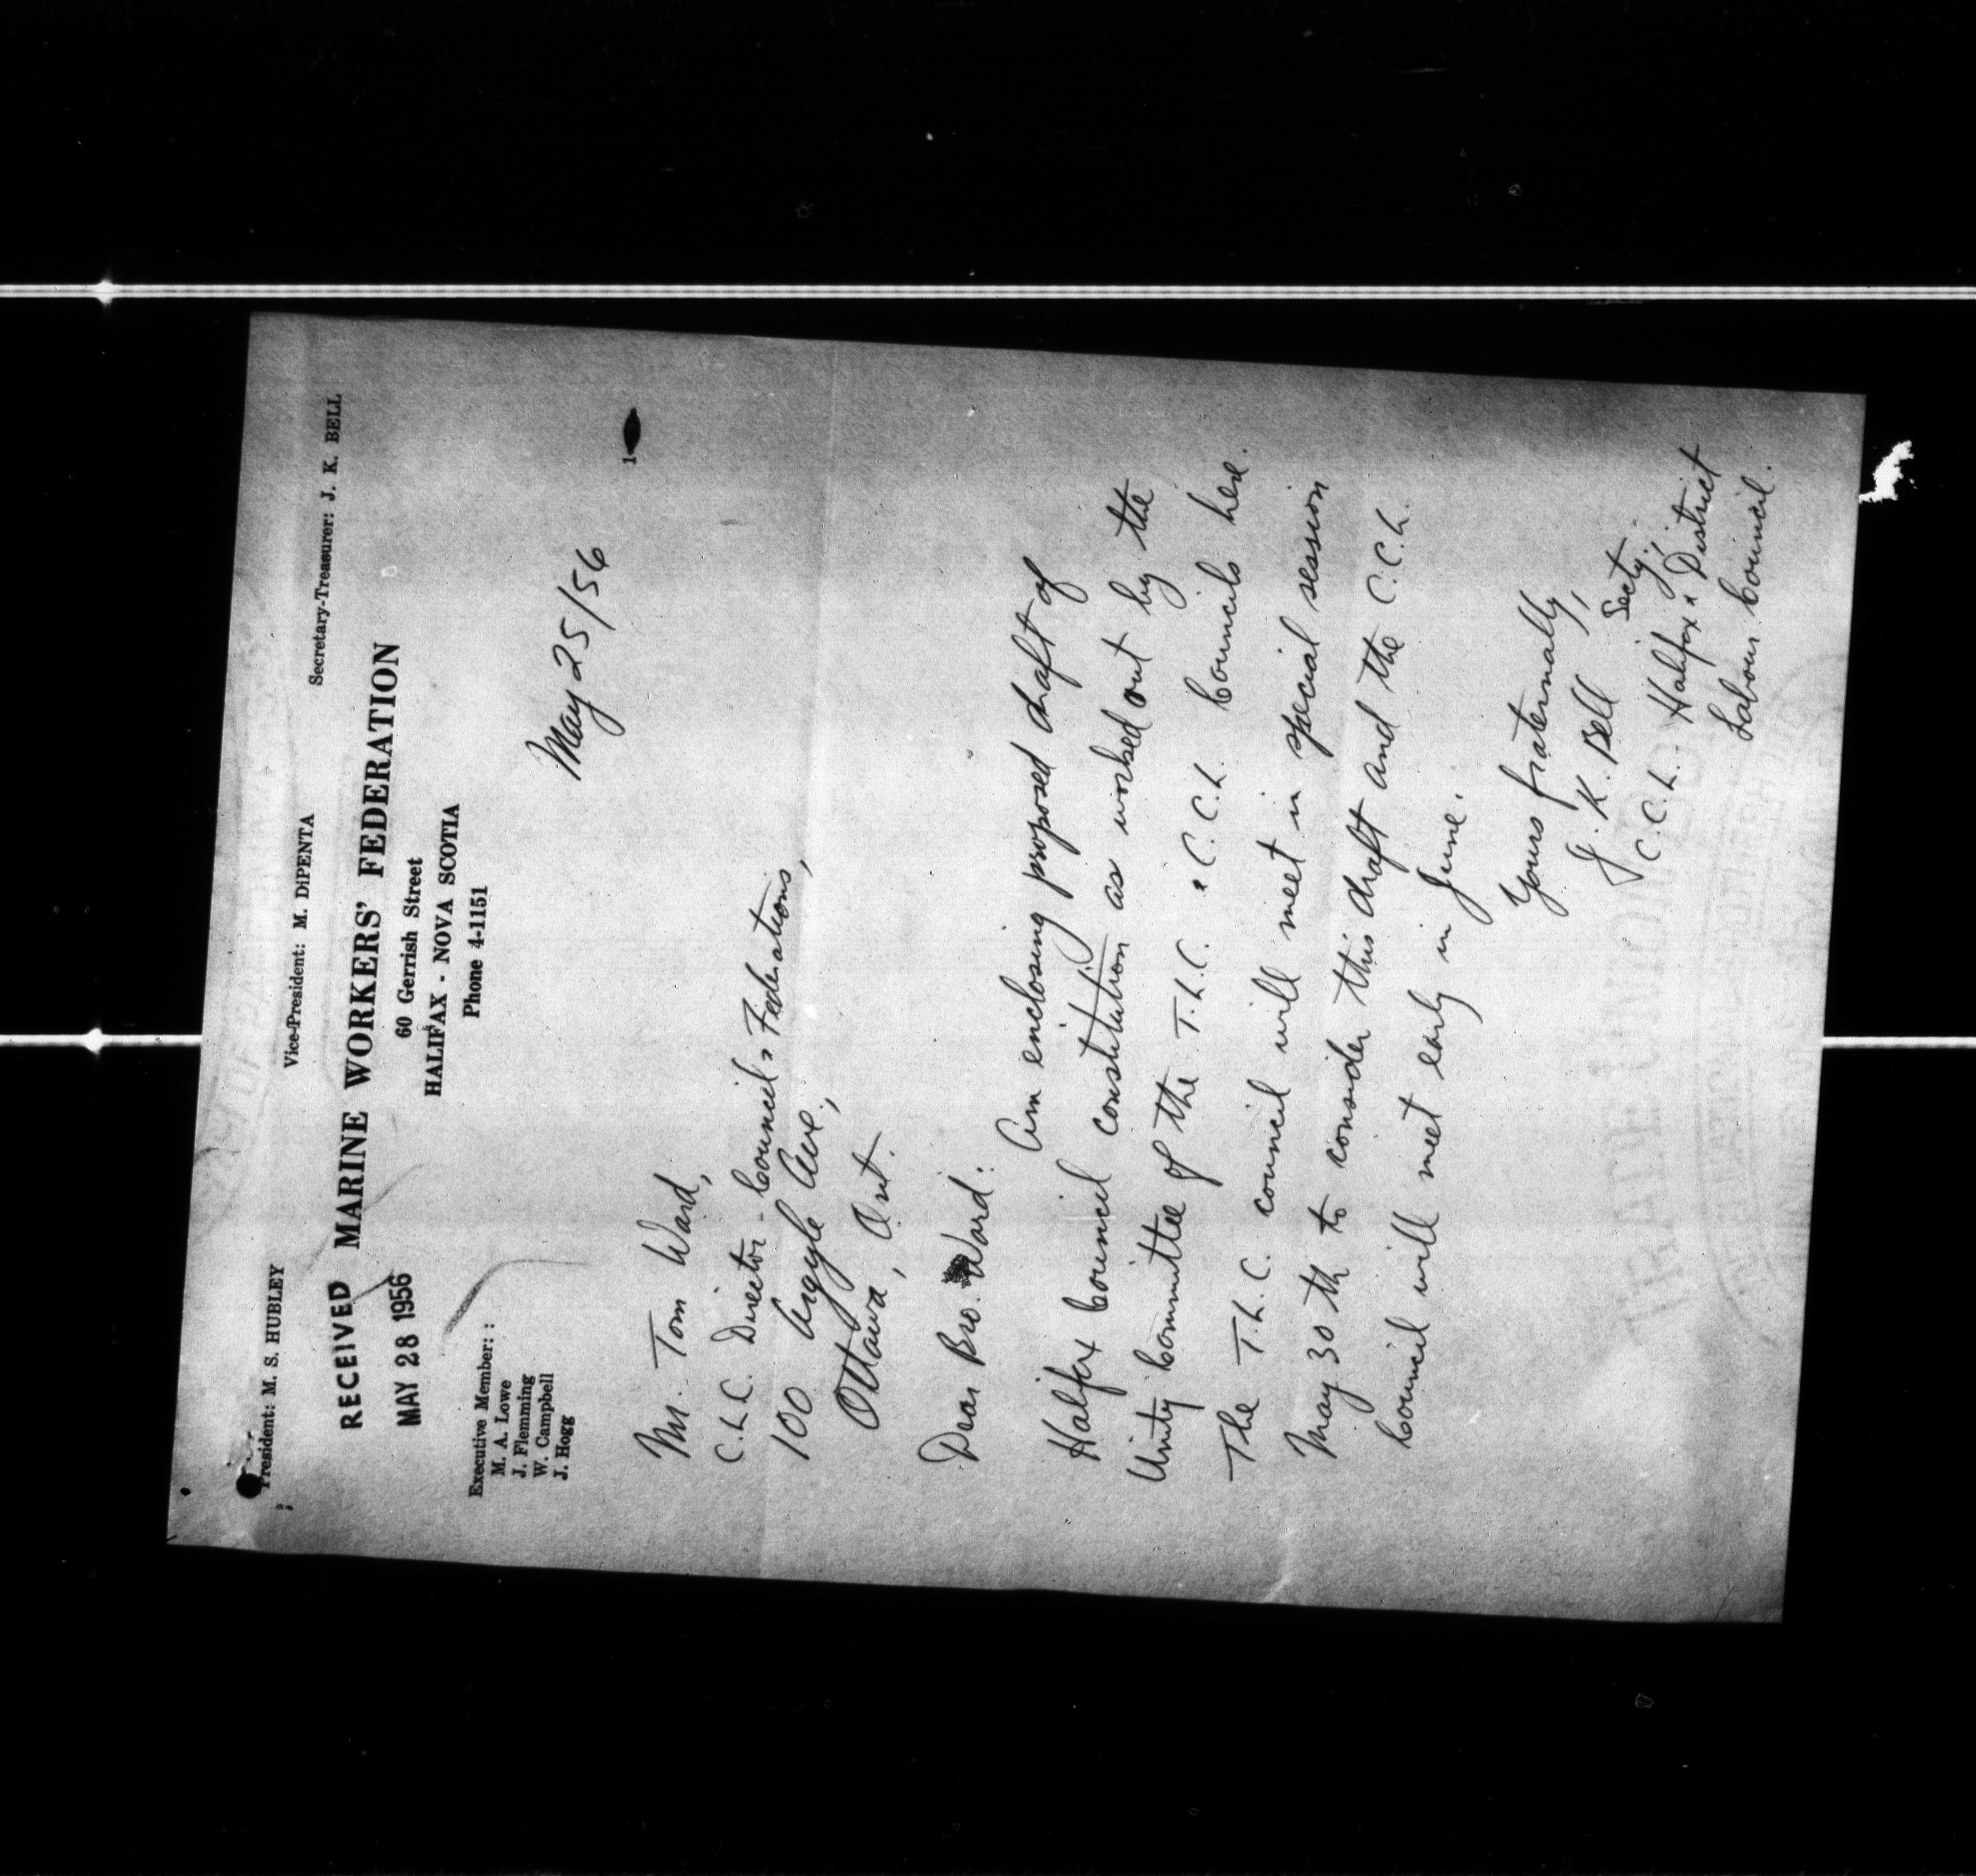 President: M. S. HUBLEY
Vice-President: M. DiPENTA
Secretary-Treasurer: J. K. BELL
RECEIVED
MAY 28 1956
MARINE WORKERS' FEDERATION
60 Gerrish Street
HALIFAX - NOVA SCOTIA
Phone 4-1151
Executive Member: :
M. A. Lowe
J. Flemming
W. Campbell
J. Hogg
May 25/56
Mr. Tom Ward,
C.L.C. Director - Councils & Federations,
100 Argyle Ave.,
Ottawa, Ont.
Dear Bro. Ward:
Am enclosing proposed draft of
Halifax Council constitution as worked out by the
Unity Committee of the T.L.C. & C.C.L. Councils here.
The T.L.C. council will meet in special session
May 30th to consider this draft and the C.C.L.
Council will meet early in June.
Yours fraternally,
J. K. Bell Secty.,
C.C.L. Halifax & District
Labour Council.